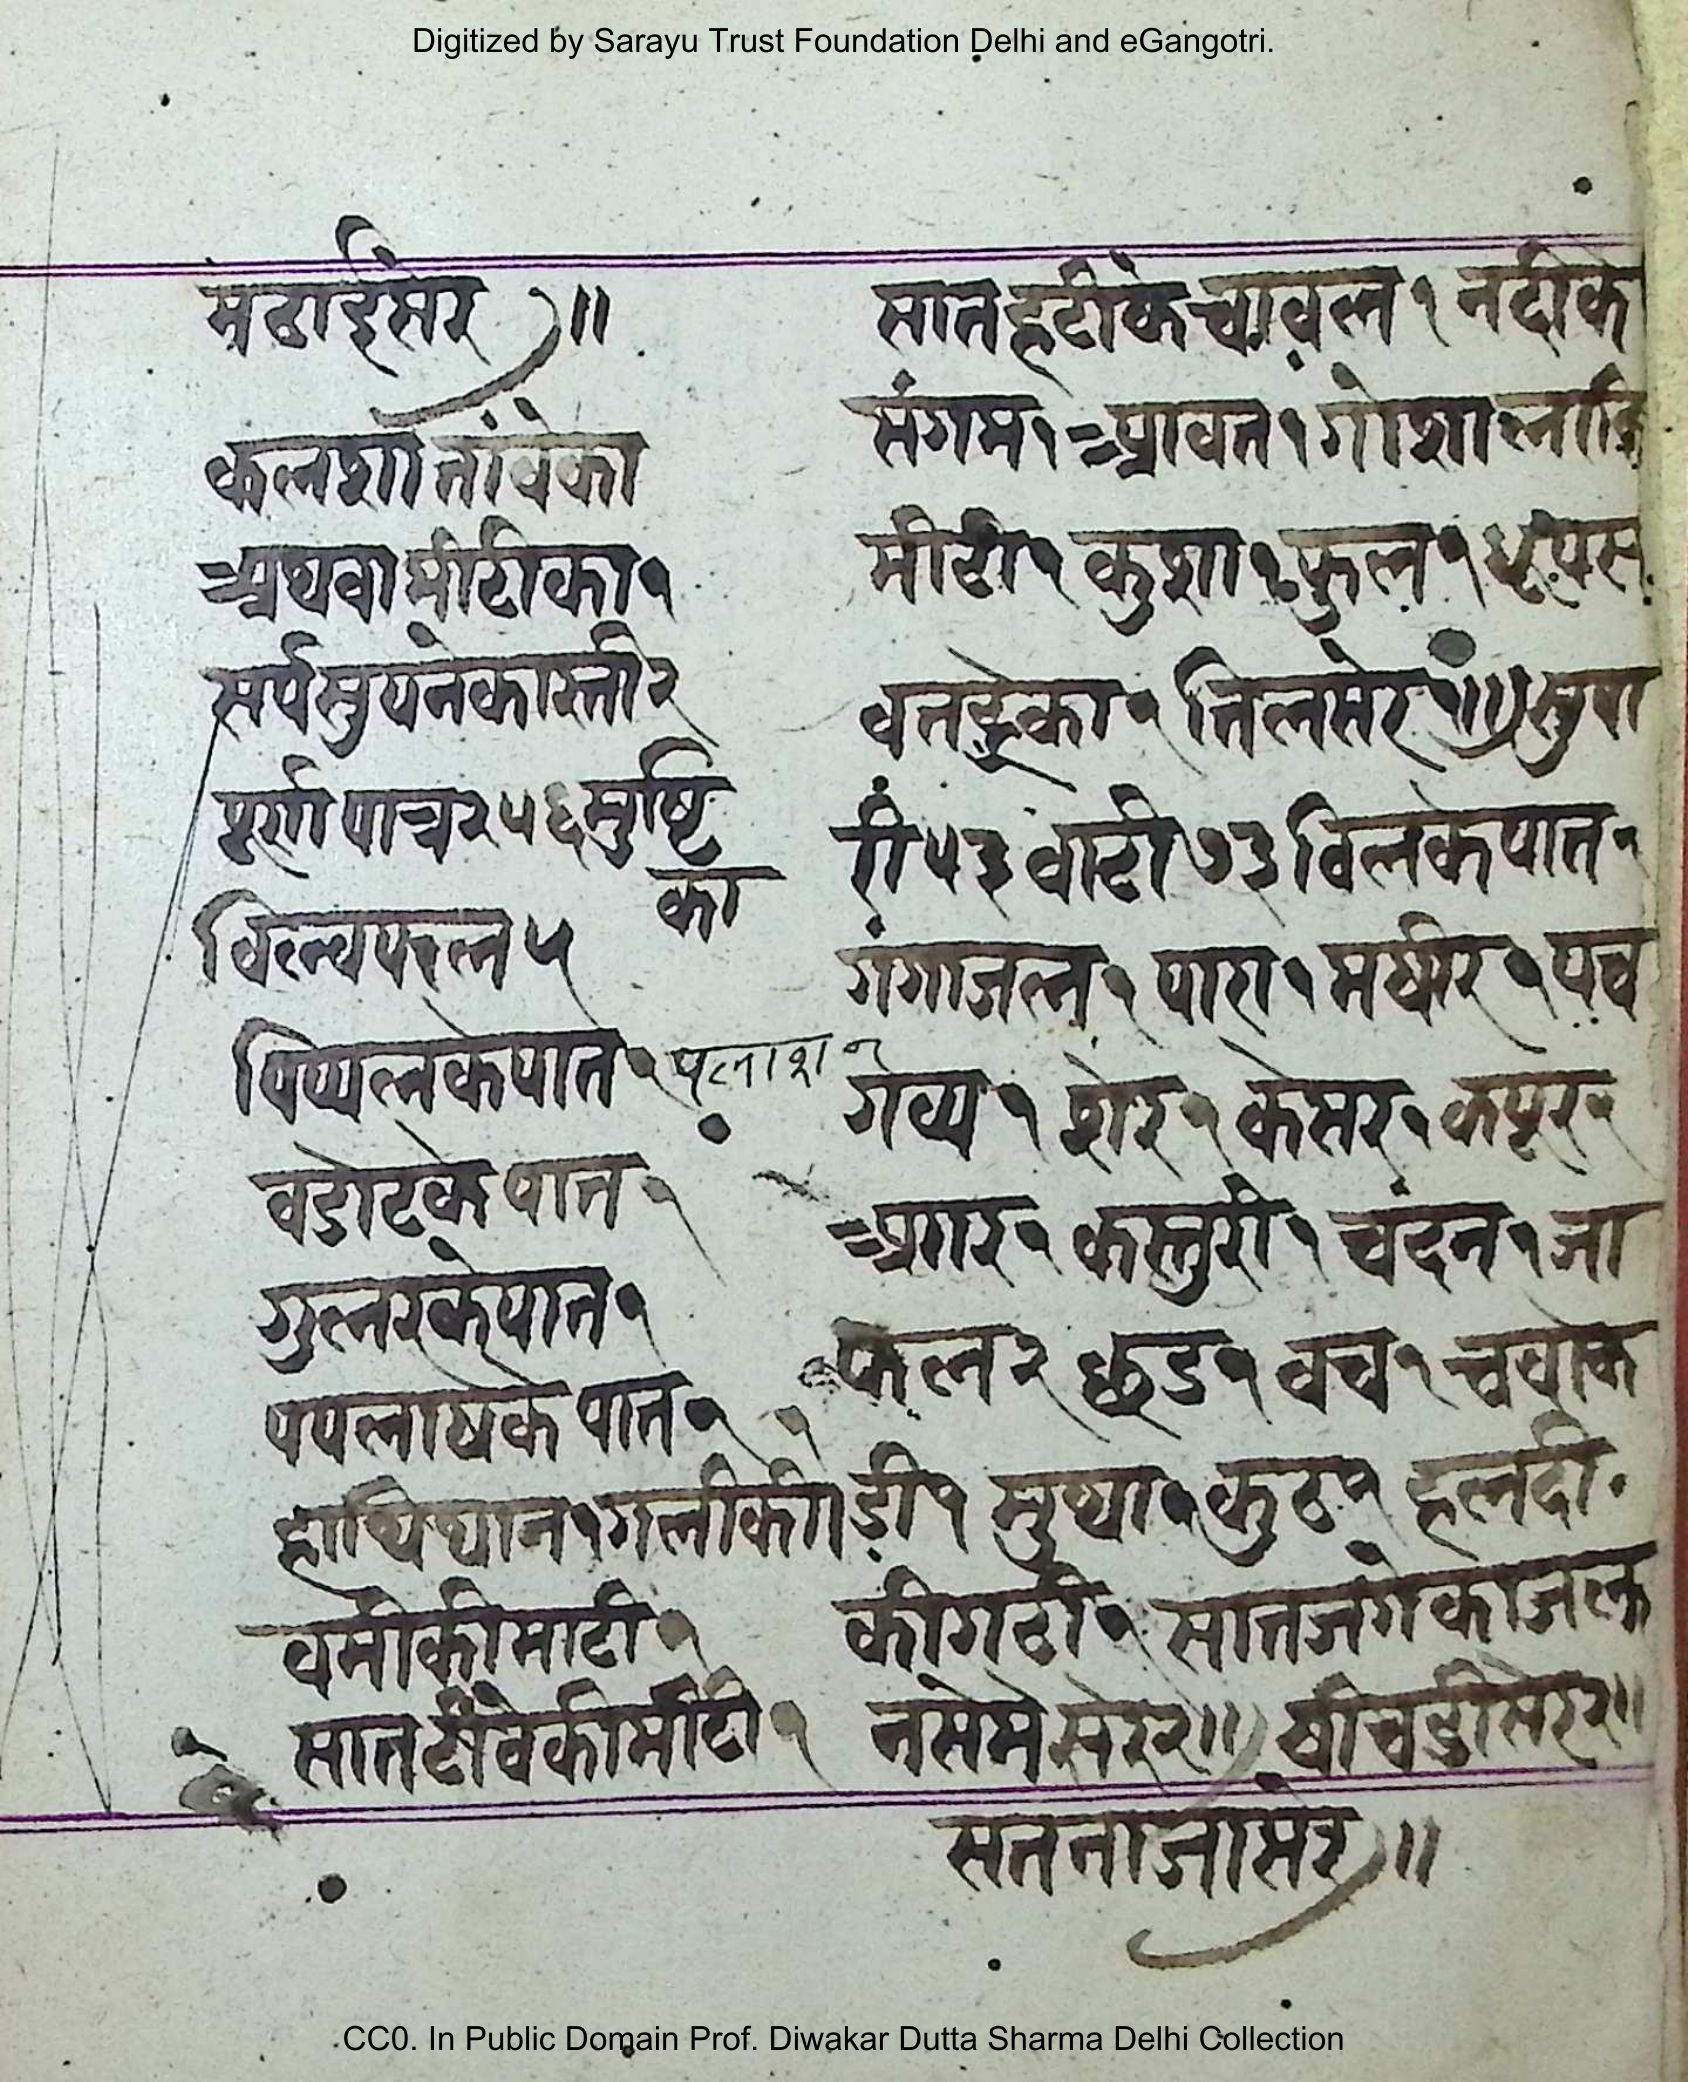 Digitized by Sarayu Trust Foundation Delhi and eGangotri.
मठाईसेर ॥
कलशा तांबेका
अथवा मीटीका १
सर्प सुपनेका रत्ती २
पूर्णा पात्र २५६ मुष्टि
का
विल्व परल ५
पिप्पलके पात १ पलाश १
वडोटके पात १
गुलरके पात १
पपलाषके पात १
हाथिथान १ गलीकी
वर्मीकी माटी १
सात टीबेकी मीटी १
सात हटीके चावल १ नदीके
संगम १ आवत १ गोशाला
मीटी १ कुशा १ फुल १ धूप स
तिलसेर १॥ सुपा
री ५३ वाटी ७३ विलके पात १
गंगाजल १ पारा १ मषीर १ पंच
गव्य १ शेर १ केसर १ कपूर १
अगर १ कस्तुरी १ चंदन १ जा
फल २ छड १ वच १ चवोक
डी १ मुथा १ कुठ १ हलदी
की गठी १ सात जगेका जल
न सेमे सेर २॥ षीचडी सेर २॥
सतनाजा सेर ॥
CC0. In Public Domain Prof. Diwakar Dutta Sharma Delhi Collection